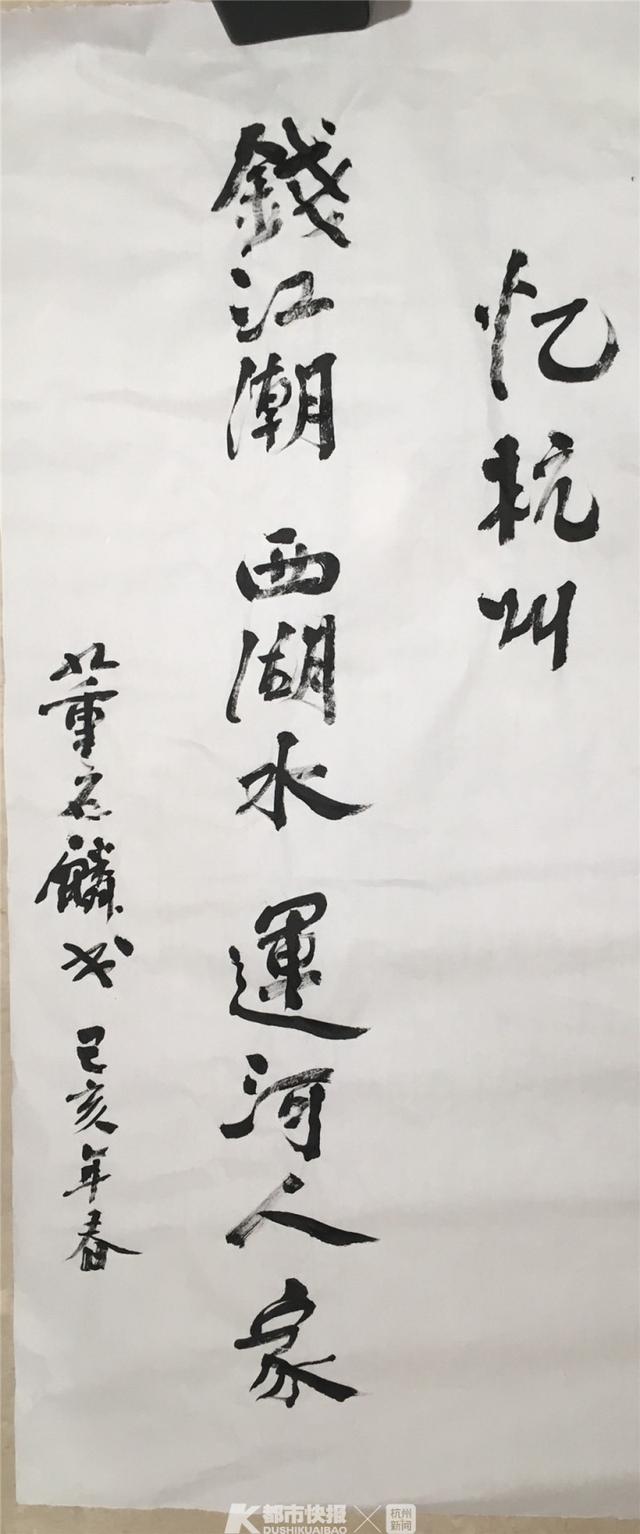 忆杭州
錢江潮 西湖水 運河人家
董名麟书 己亥年春
都市快报
DUSHIKUAIBAO
杭州
新闻